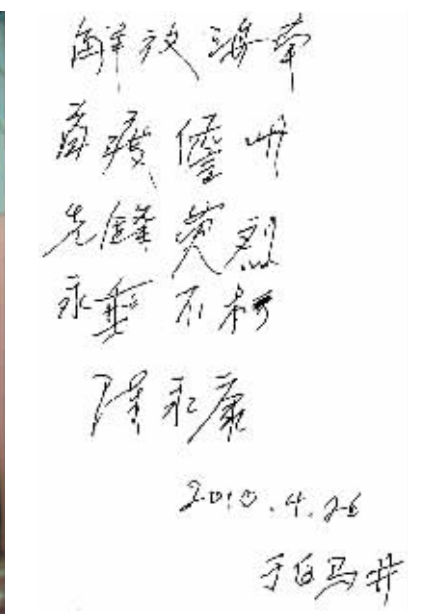 解放海南
首渡儋州
先锋英烈
永垂不朽
陈永康
2010.4.26
于白马井